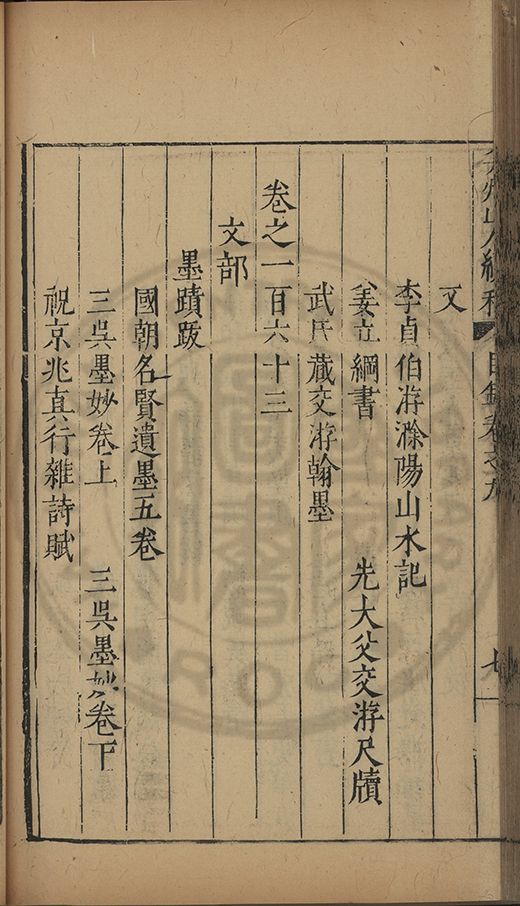 弇州山人續稿 目錄卷之九 七
又
李貞伯游滁陽山水記
姜立綱書 先大父交游尺牘
武氏藏交游翰墨
卷之一百六十三
文部
墨蹟跋
國朝名賢遺墨五卷
三吳墨妙卷上 三吳墨妙卷下
祝京兆真行雜詩賦